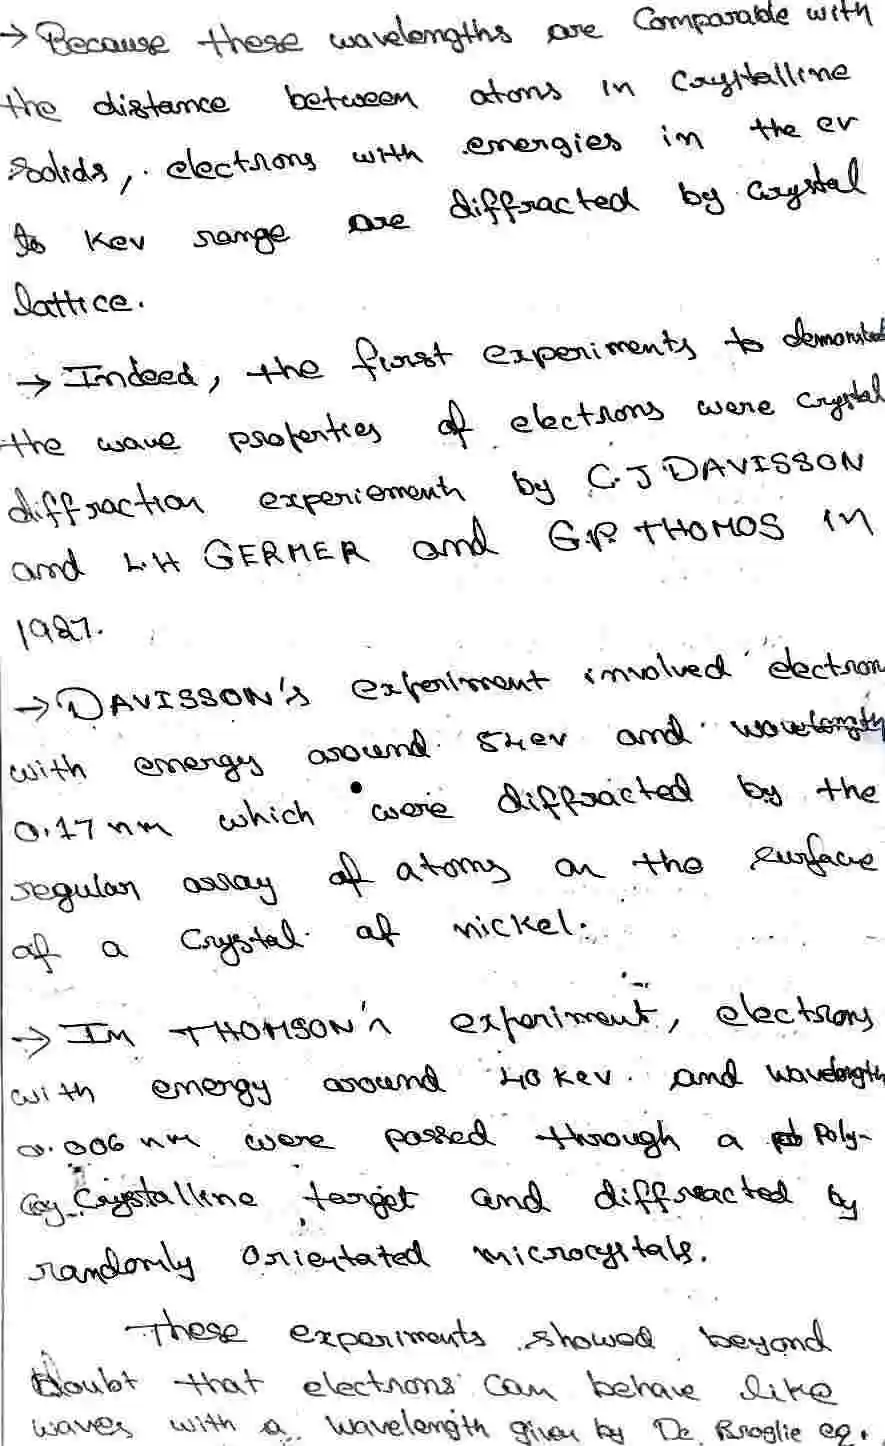 → Because these wavelengths are Comparable with
the distance between atoms in Crystalline
Solids, electrons with energies in the ev
to Kev range are diffracted by crystal
lattice.
→ Indeed, the first experiments to demonstrated
the wave properties of electrons were crystal
diffraction experiement by C.J DAVISSON
and L.H GERMER and G.P. THOMOS in
1927.
→ DAVISSON's experiment involved electron
with energy around 54ev and wavelength
0.17 nm which were diffracted by the
regular array of atoms on the surface
of a Crystal of nickel.
→ In THOMSON's experiment, electrons
with energy around 40 Kev. and wavelength
0.006 nm were passed through a Poly-
Crystalline target and diffreacted by
randomly Orientated microcystals.
These experiments showed beyond
Doubt that electrons can behave like
waves with a wavelength given by De Broglie eq.